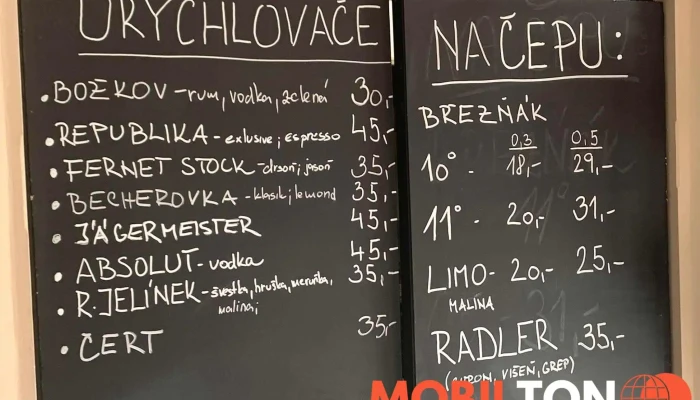 URYCHLOVAČE
• BOŽKOV - rum, vodka, zelená 30,-
• REPUBLIKA - exlusive; espresso 45,-
• FERNET STOCK - citrus; 35,-
• BECHEROVKA - klasik; lemond 35,-
• JÄGERMEISTER 45,-
• ABSOLUT - vodka 45,-
• R. JELÍNEK - švestka, hruška, meruňka, 35,-
malina;
• ČERT 35,-
NA ČEPU:
BŘEZŇÁK
0,3 0,5
10° - 18,- 29,-
11° - 20,- 31,-
LIMO - 20,- 25,-
MALINA
RADLER 35,-
VIŠEŇ, GREP)
MOBILTON